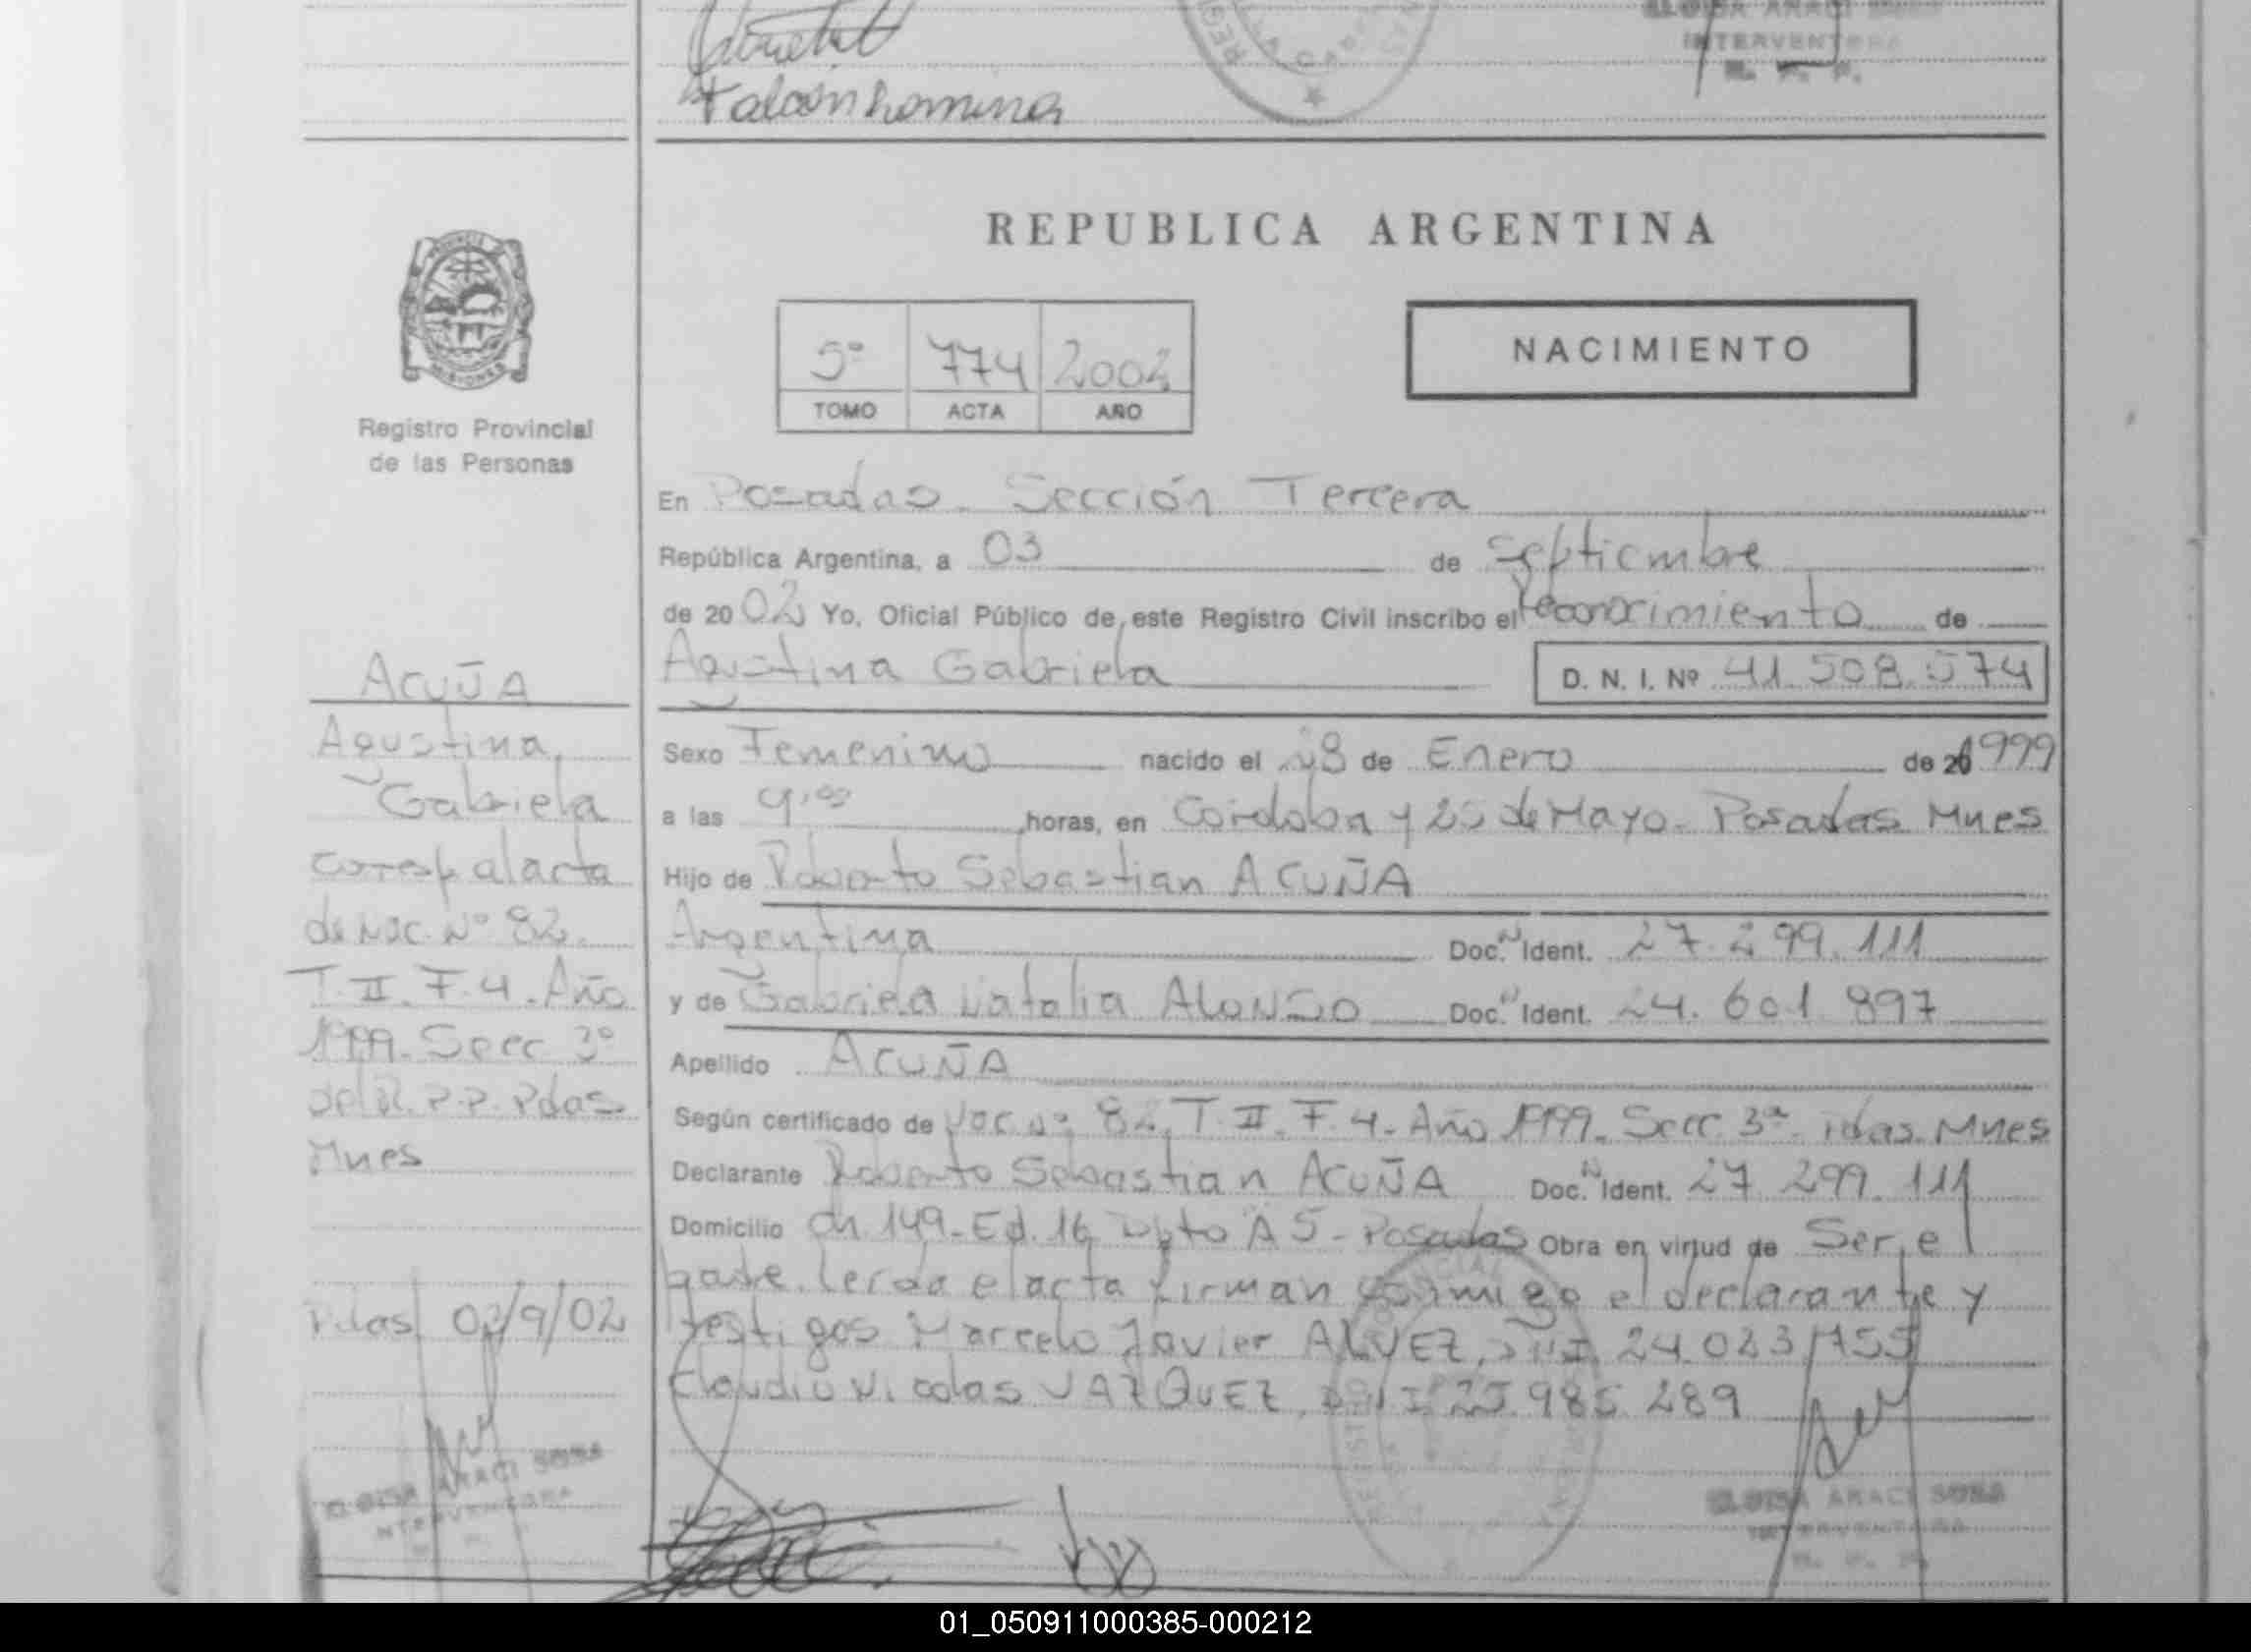 Falcón Romina
ELOISA ARACI SOSA
INTERVENTORA
R. P. P.
REPUBLICA ARGENTINA
5º 774 2002
TOMO ACTA AÑO
NACIMIENTO
PROVINCIA
MISIONES
Registro Provincial
de las Personas
ACUÑA
Agustina
Gabriela
corresp al acta
de Nac. Nº 82.
T. II. F. 4. Año
1999. Secc 3º
del R. P. P. Pdas
Mnes
Pdas 03/9/02
ELOISA ARACI SOSA
INTERVENTORA
En Posadas. Sección Tercera
República Argentina, a 03 de Septiembre
de 2002 Yo, Oficial Público de este Registro Civil inscribo el reconocimiento de
Agustina Gabriela D. N. I. Nº 41.508.574
Sexo Femenino nacido el 28 de Enero de 1999
a las 9,00 horas, en Córdoba y 25 de Mayo. Posadas Mnes
Hijo de Roberto Sebastian ACUÑA
Argentina Doc. N Ident. 27.299.111
y de Gabriela Natalia ALONSO Doc. N Ident. 24.601.897
Apellido ACUÑA
Según certificado de Nac Nº 82. T. II. F. 4. Año 1999. Secc 3ª. Pdas. Mnes
Declarante Roberto Sebastian ACUÑA Doc. N Ident. 27.299.111
Domicilio Ch 149. Ed. 16 Dpto A 5 - Posadas Obra en virtud de Ser el
padre. Leída el acta firman conmigo el declarante y
testigos Marcelo Javier ALVEZ, DNI. 24.023.755
Claudio Nicolas VAZQUEZ, DNI 25.985.289
ELOISA ARACI SOSA
INTERVENTORA
R. P. P.
01_050911000385-000212